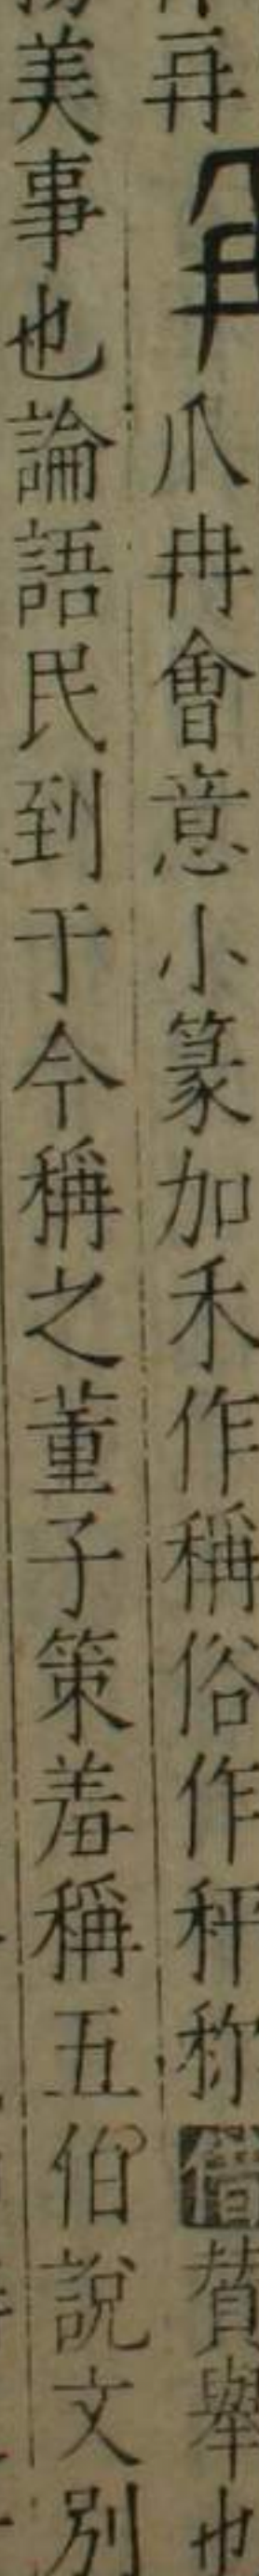 爯爪冉會意小篆加禾作稱俗作秤称借贊舉也
美事也論語民到于今稱之董子策羞稱五伯說文別